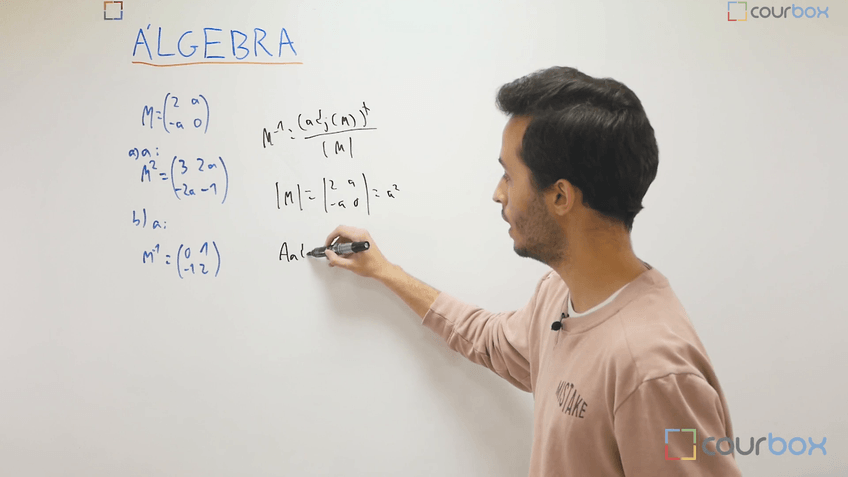 courbox
ÁLGEBRA
M=(2 a
-a 0)
a) a:
M²=(3 2a
-2a -1)
b) a:
M⁻¹=(0 1
-1 2)
M⁻¹=(adj(M))ᵗ
|M|
|M|=|2 a
-a 0|=a²
MISTAKE
courbox